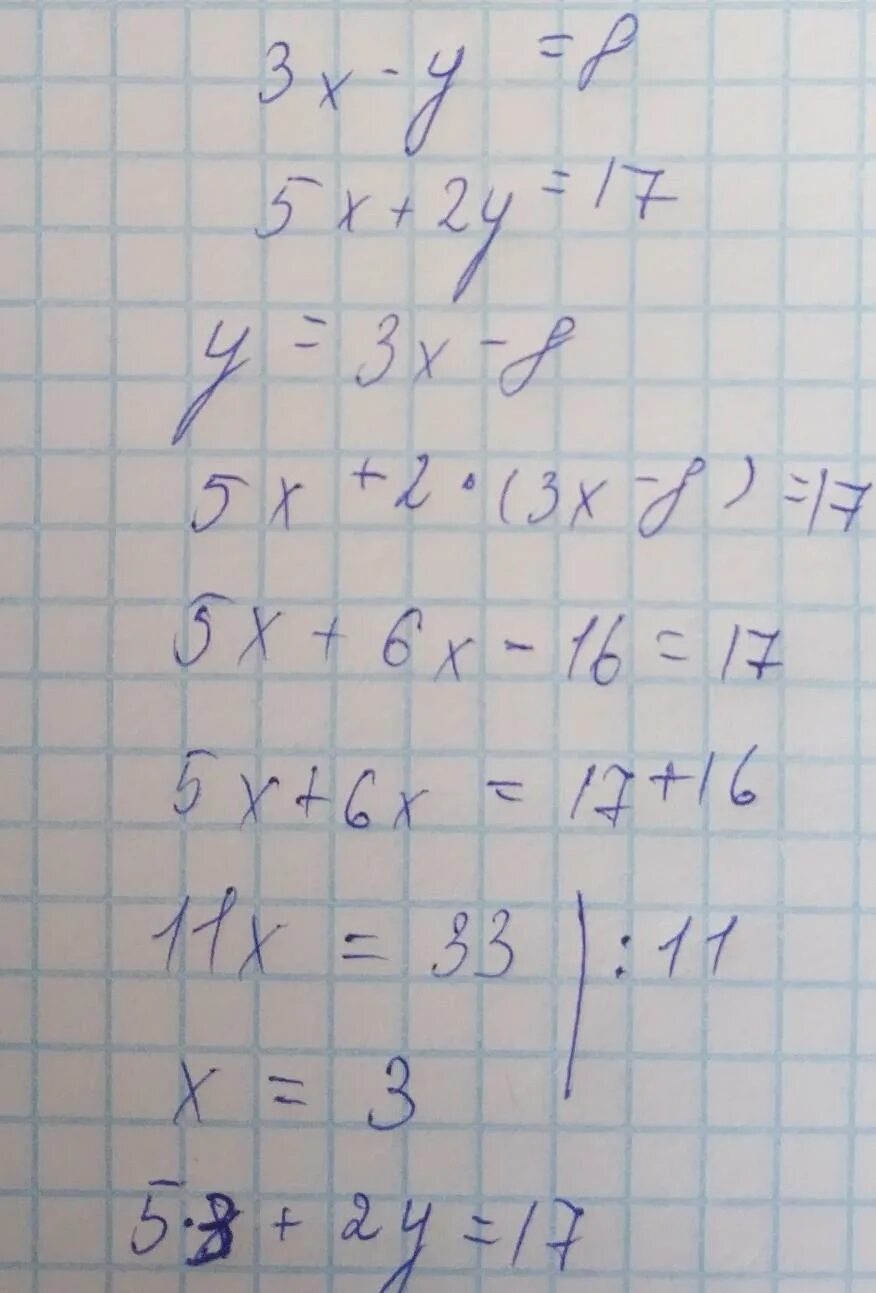 3x - y = 8
5x + 2y = 17
y = 3x - 8
5x + 2 · (3x - 8) = 17
5x + 6x - 16 = 17
5x + 6x = 17 + 16
11x = 33 | : 11
x = 3
5 · 3 + 2y = 17